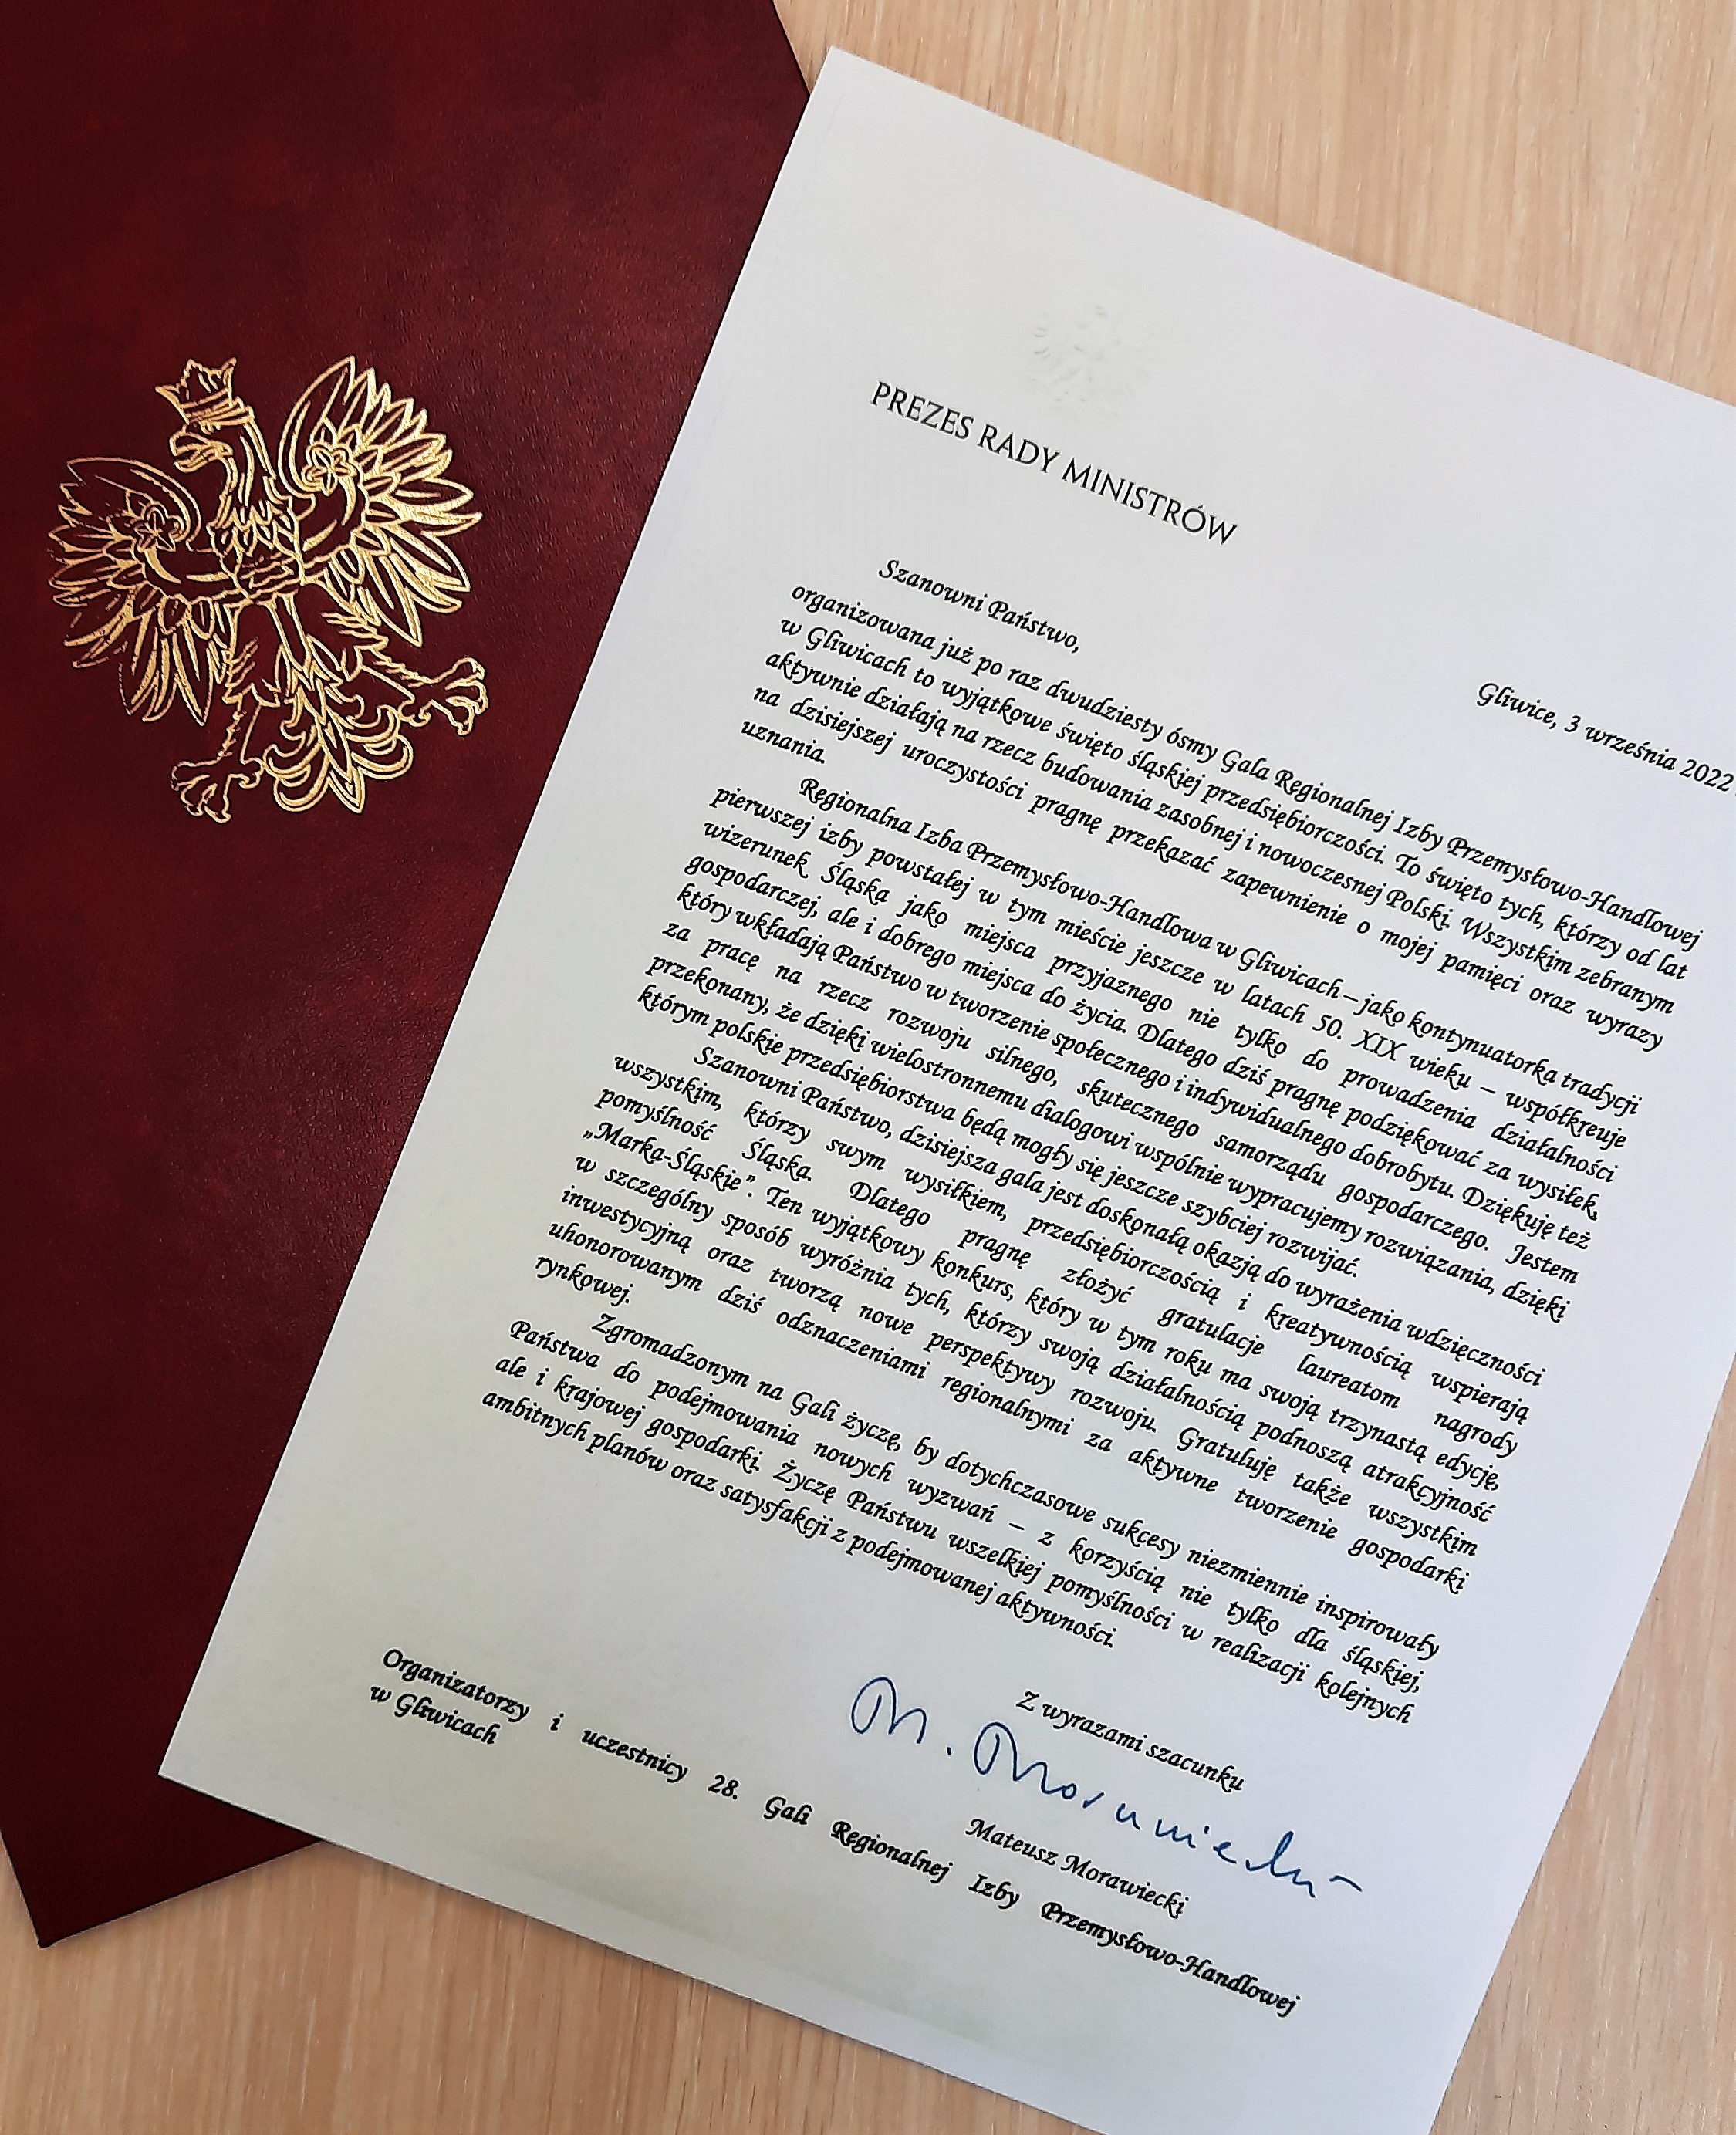 PREZES RADY MINISTRÓW
Gliwice, 3 września 2022
Szanowni Państwo,
organizowana już po raz dwudziesty ósmy Gala Regionalnej Izby Przemysłowo-Handlowej
w Gliwicach to wyjątkowe święto śląskiej przedsiębiorczości. To święto tych, którzy od lat
aktywnie działają na rzecz budowania zasobnej i nowoczesnej Polski. Wszystkim zebranym
na dzisiejszej uroczystości pragnę przekazać zapewnienie o mojej pamięci oraz wyrazy
uznania.
Regionalna Izba Przemysłowo-Handlowa w Gliwicach – jako kontynuatorka tradycji
pierwszej izby powstałej w tym mieście jeszcze w latach 50. XIX wieku – współkreuje
wizerunek Śląska jako miejsca przyjaznego nie tylko do prowadzenia działalności
gospodarczej, ale i dobrego miejsca do życia. Dlatego dziś pragnę podziękować za wysiłek,
który wkładają Państwo w tworzenie społecznego i indywidualnego dobrobytu. Dziękuję też
za pracę na rzecz rozwoju silnego, skutecznego samorządu gospodarczego. Jestem
przekonany, że dzięki wielostronnemu dialogowi wspólnie wypracujemy rozwiązania, dzięki
którym polskie przedsiębiorstwa będą mogły się jeszcze szybciej rozwijać.
Szanowni Państwo, dzisiejsza gala jest doskonałą okazją do wyrażenia wdzięczności
wszystkim, którzy swym wysiłkiem, przedsiębiorczością i kreatywnością wspierają
pomyślność Śląska. Dlatego pragnę złożyć gratulacje laureatom nagrody
„Marka-Śląskie”. Ten wyjątkowy konkurs, który w tym roku ma swoją trzynastą edycję,
w szczególny sposób wyróżnia tych, którzy swoją działalnością podnoszą atrakcyjność
inwestycyjną oraz tworzą nowe perspektywy rozwoju. Gratuluję także wszystkim
uhonorowanym dziś odznaczeniami regionalnymi za aktywne tworzenie gospodarki
rynkowej.
Zgromadzonym na Gali życzę, by dotychczasowe sukcesy niezmiennie inspirowały
Państwa do podejmowania nowych wyzwań – z korzyścią nie tylko dla śląskiej,
ale i krajowej gospodarki. Życzę Państwu wszelkiej pomyślności w realizacji kolejnych
ambitnych planów oraz satysfakcji z podejmowanej aktywności.
Z wyrazami szacunku
M. Morawiecki
Mateusz Morawiecki
Organizatorzy i uczestnicy 28. Gali Regionalnej Izby Przemysłowo-Handlowej
w Gliwicach